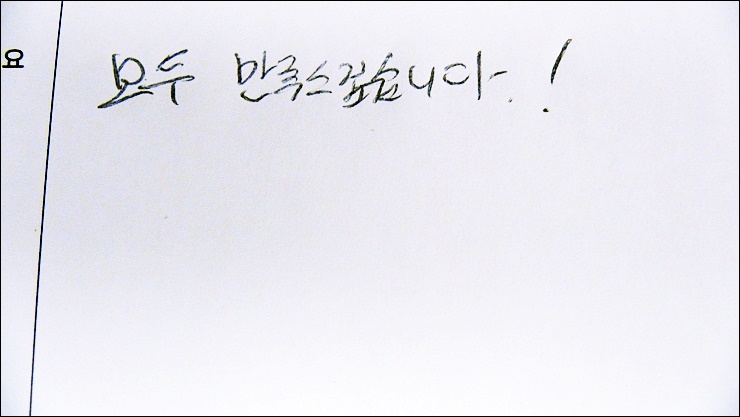 모두 만족스럽습니다. !
요